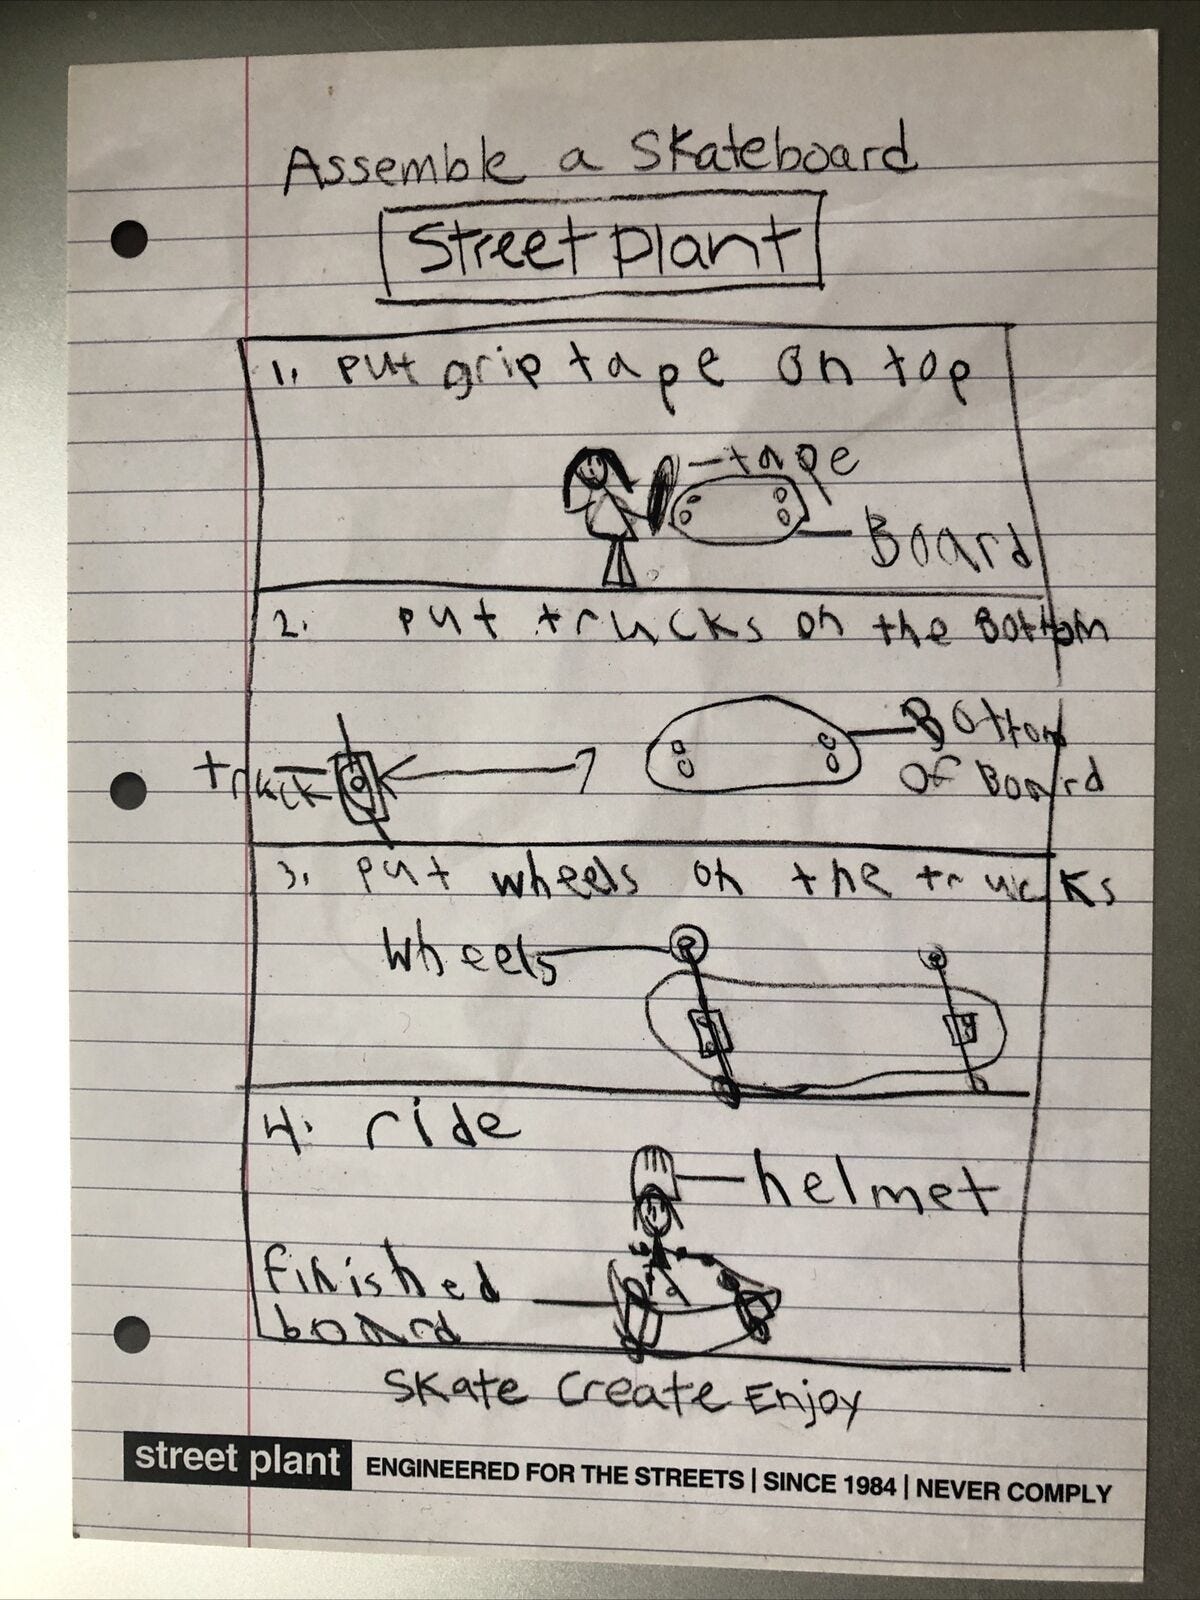 Assemble a Skateboard
Street plant
1. put grip tape on top
tape
Board
2. put trucks on the Bottom
Bottom
truck
Of Board
3. put wheels on the trucks
Wheels
4. ride
helmet
finished
board
Skate Create Enjoy
street plant ENGINEERED FOR THE STREETS | SINCE 1984 | NEVER COMPLY